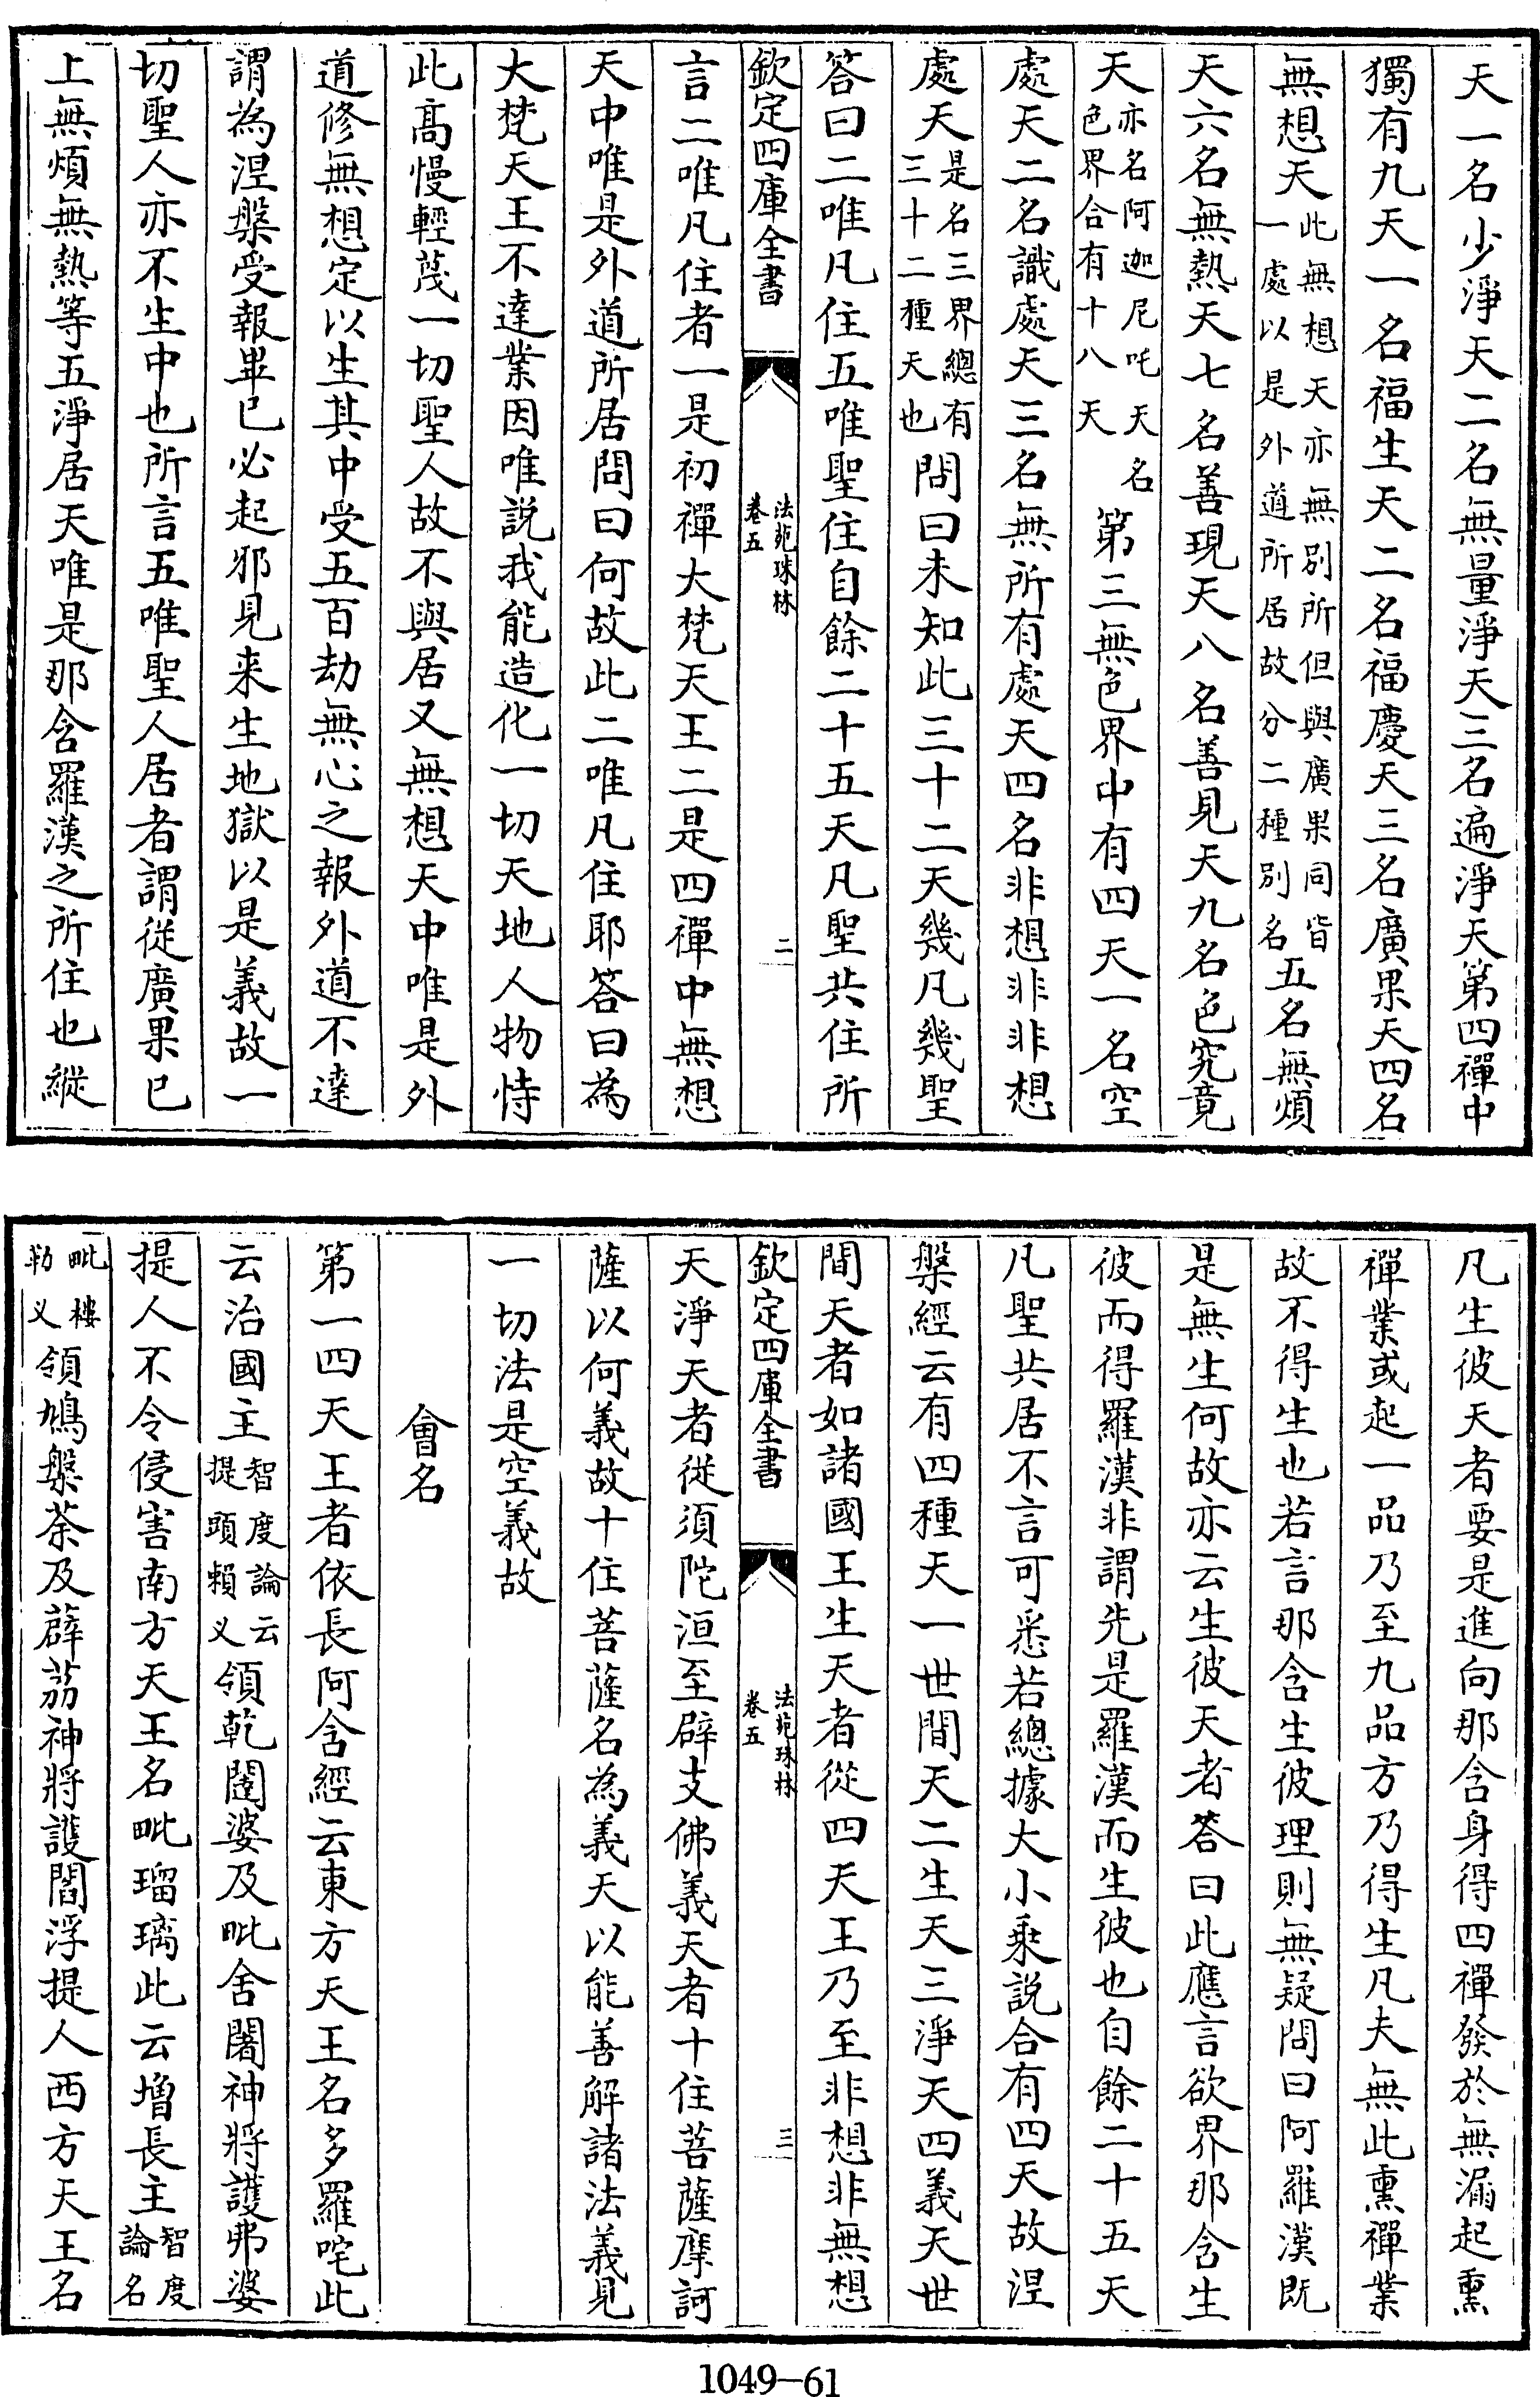 天一名少淨天二名無量淨天三名遍淨天第四禪中
獨有九天一名福生天二名福慶天三名廣果天四名
無想天此無想天亦無別所但與廣果同皆一處以是外道所居故分二種別名五名無煩
天六名無熱天七名善現天八名善見天九名色究竟
天亦名阿迦尼吒天名色界合有十八天第三無色界中有四天一名空
處天二名識處天三名無所有處天四名非想非非想
處天是名三界總有三十二種天也問曰未知此三十二天幾凡幾聖
答曰二唯凡住五唯聖住自餘二十五天凡聖共住所
欽定四庫全書
法苑珠林
卷五
二
言二唯凡住者一是初禪大梵天王二是四禪中無想
天中唯是外道所居問曰何故此二唯凡住耶答曰為
大梵天王不達業因唯說我能造化一切天地人物恃
此高慢輕蔑一切聖人故不與居又無想天中唯是外
道修無想定以生其中受五百劫無心之報外道不達
謂為涅槃受報畢已必起邪見来生地獄以是義故一
切聖人亦不生中也所言五唯聖人居者謂從廣果已
上無煩無熱等五淨居天唯是那含羅漢之所住也縱
凡生彼天者要是進向那含身得四禪發於無漏起熏
禪業或起一品乃至九品方乃得生凡夫無此熏禪業
故不得生也若言那含生彼理則無疑問曰阿羅漢既
是無生何故亦云生彼天者答曰此應言欲界那含生
彼而得羅漢非謂先是羅漢而生彼也自餘二十五天
凡聖共居不言可悉若總據大小乘說合有四天故涅
槃經云有四種天一世間天二生天三淨天四義天世
間天者如諸國王生天者從四天王乃至非想非無想
欽定四庫全書
法苑珠林
卷五
三
天淨天者從須陀洹至辟支佛義天者十住菩薩摩訶
薩以何義故十住菩薩名為義天以能善解諸法義見
一切法是空義故
會名
第一四天王者依長阿含經云東方天王名多羅咤此
云治國主智度論云提頭賴义領乾闥婆及毗舍闍神將護弗婆
提人不令侵害南方天王名毗瑠璃此云增長主智度論名
毗樓勒义領鳩槃荼及薜荔神將護閻浮提人西方天王名
1049-61